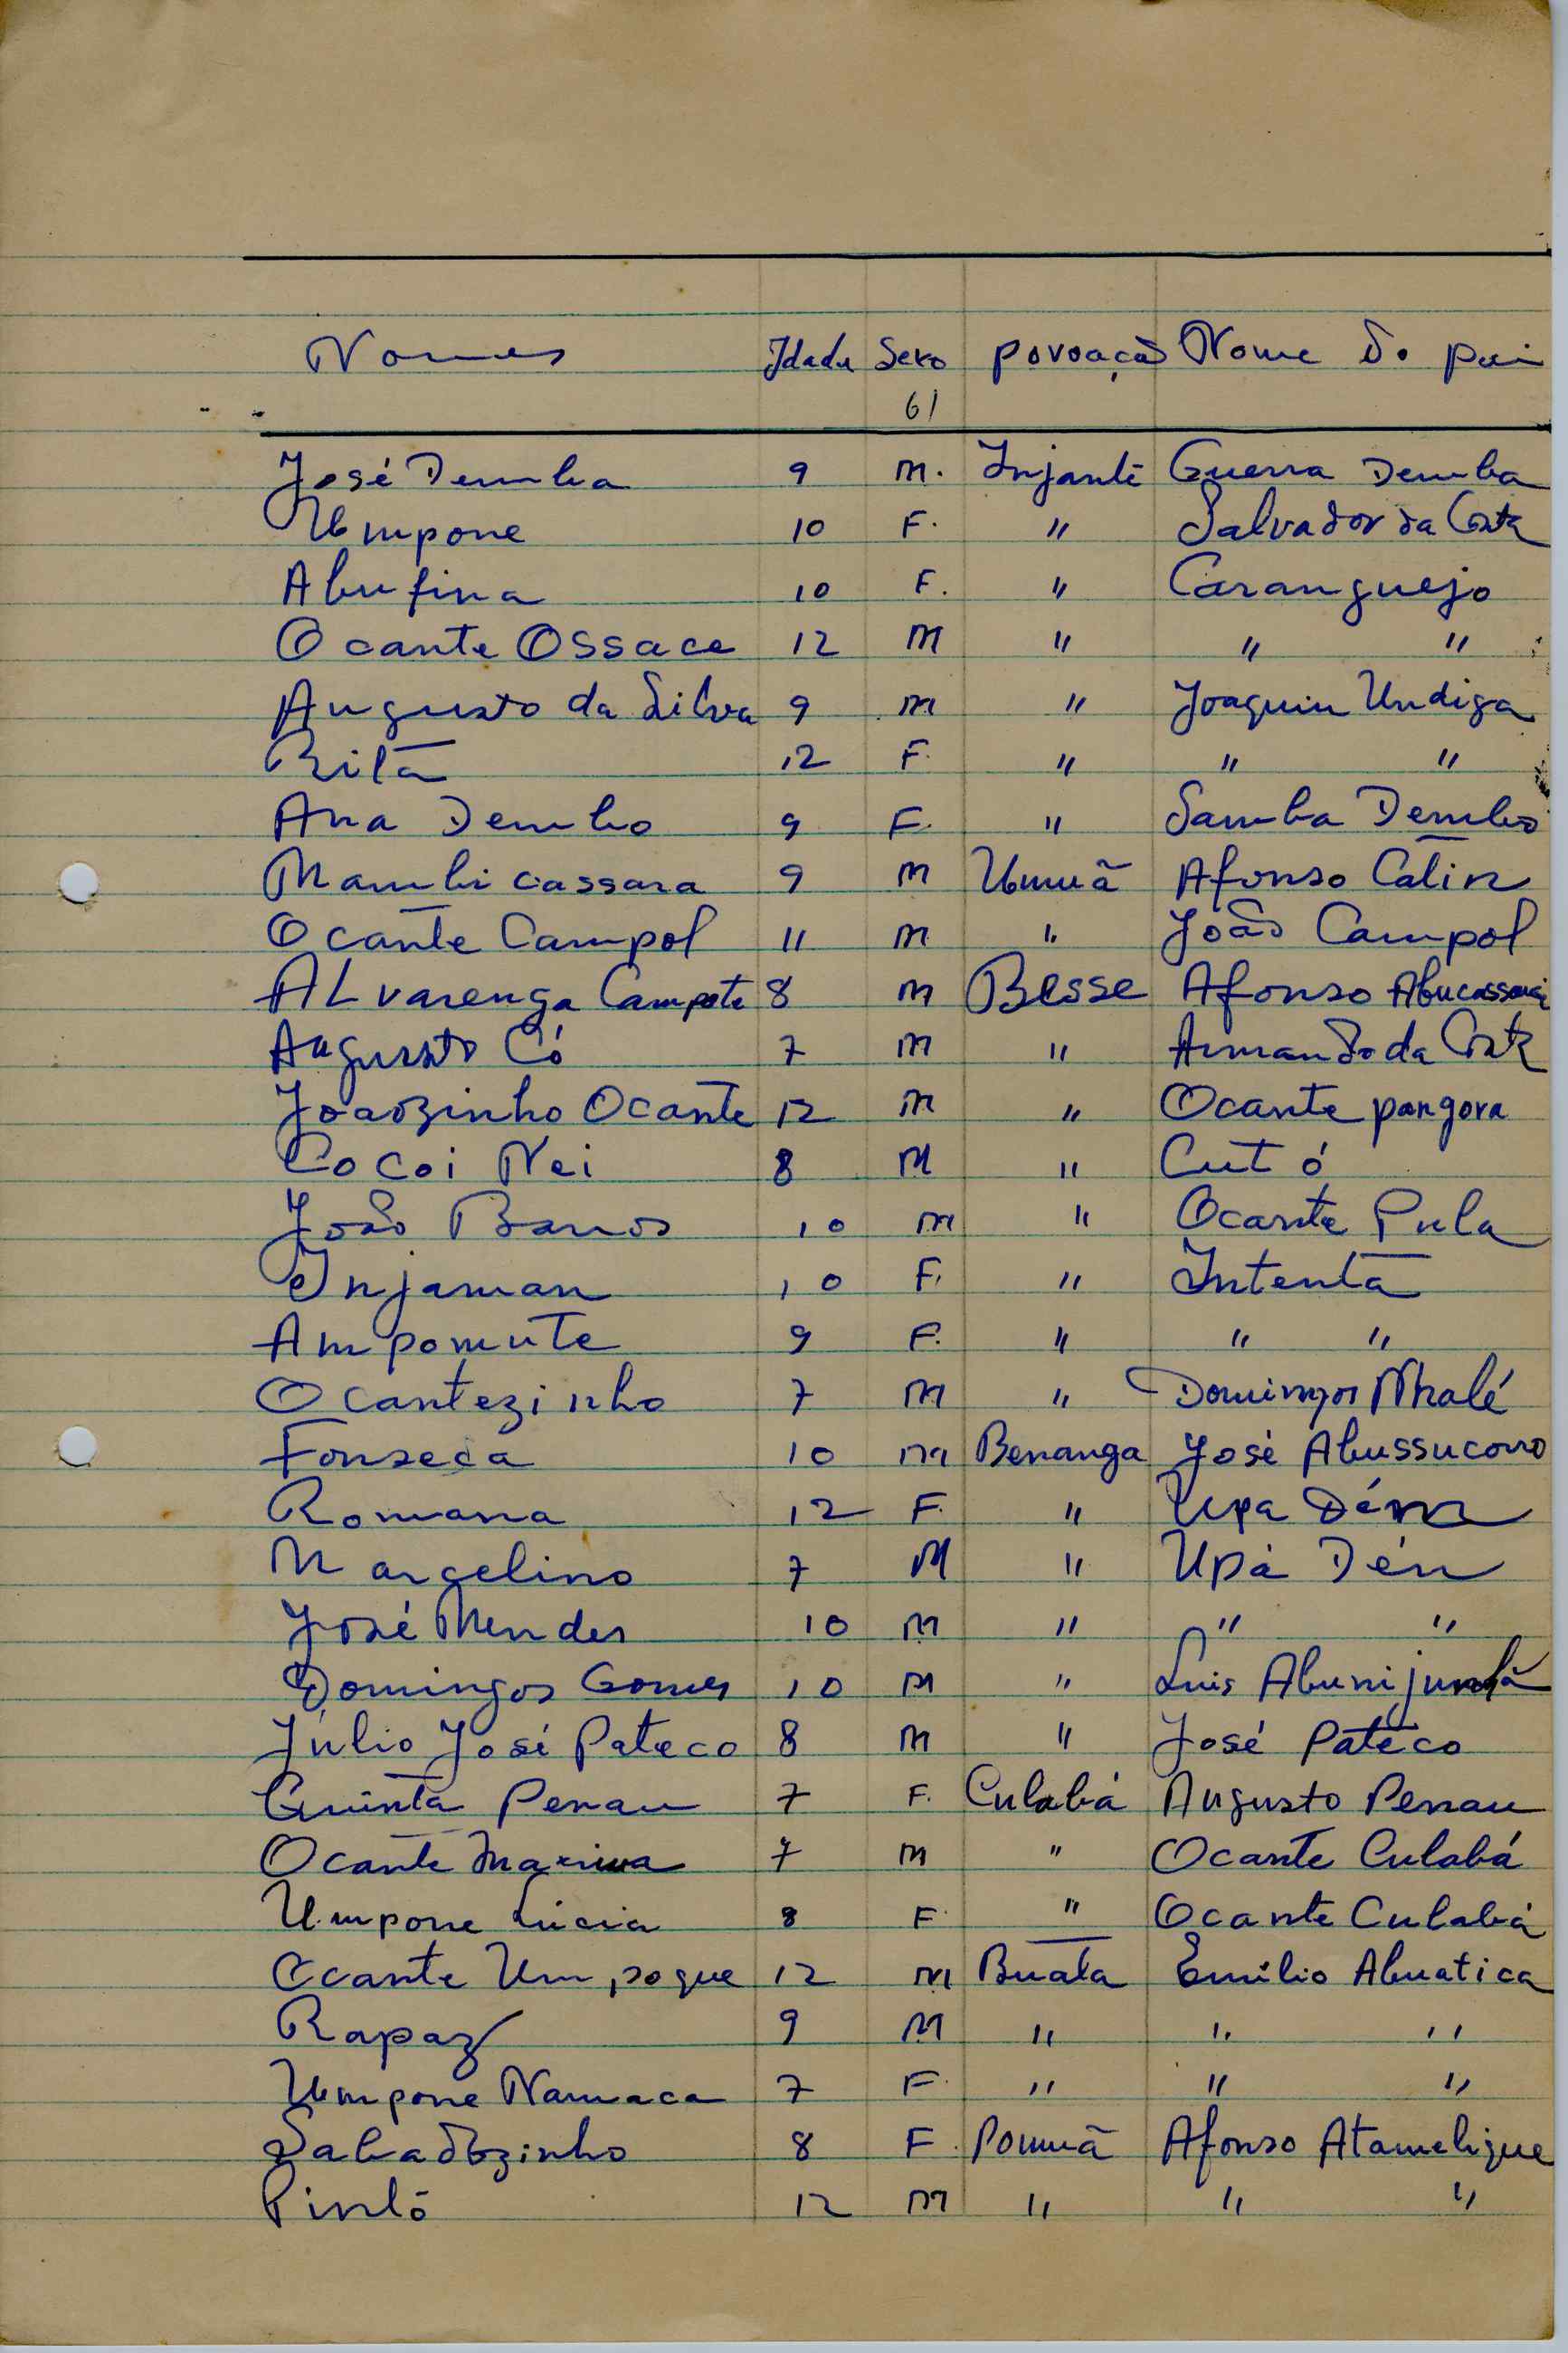 Nomes Idade Sexo povoação Nome do pai
61
José Demba 9 M. Injante Guerra Demba
Umpone 10 F. " Salvador da Costa
Abufina 10 F. " Caranguejo
Ocante Ossace 12 M " " "
Augusto da Silva 9 M " Joaquim Undiga
Rita 12 F. " " "
Ana Dembo 9 F. " Samba Dembo
Mambi cassara 9 M Umuã Afonso Catin
Ocante Campol 11 M " João Campol
ALvarenga Campote 8 M Besse Afonso
Augusto Có 7 M " Armando da Costa
Joãozinho Ocante 12 M " Ocante pangora
Cocoi Nei 8 M " Cutó
João Barros 10 M " Ocante Pula
Injaman 10 F. " Intenta
Ampomute 9 F. " " "
Ocantezinho 7 M " Domingos Nhalé
Fonseca 10 M Benanga José Abussucorro
Romana 12 F. " Upa
Marcelino 7 M " Upa Dén
José Mendes 10 M " " "
Domingos Gomes 10 M " Luis
Júlio José Pateco 8 M " José Pateco
Quinta Penau 7 F. Culabá Augusto Penau
Ocante 7 M " Ocante Culabá
Umpone Lúcia 8 F " Ocante Culabá
Ocante Um poque 12 M Buata Emílio Abuatica
Rapaz 9 M " " "
Umpone Namaca 7 F. " " "
Sabadozinho 8 F. Pomuã Afonso Atamelique
Pintó 12 M " " "